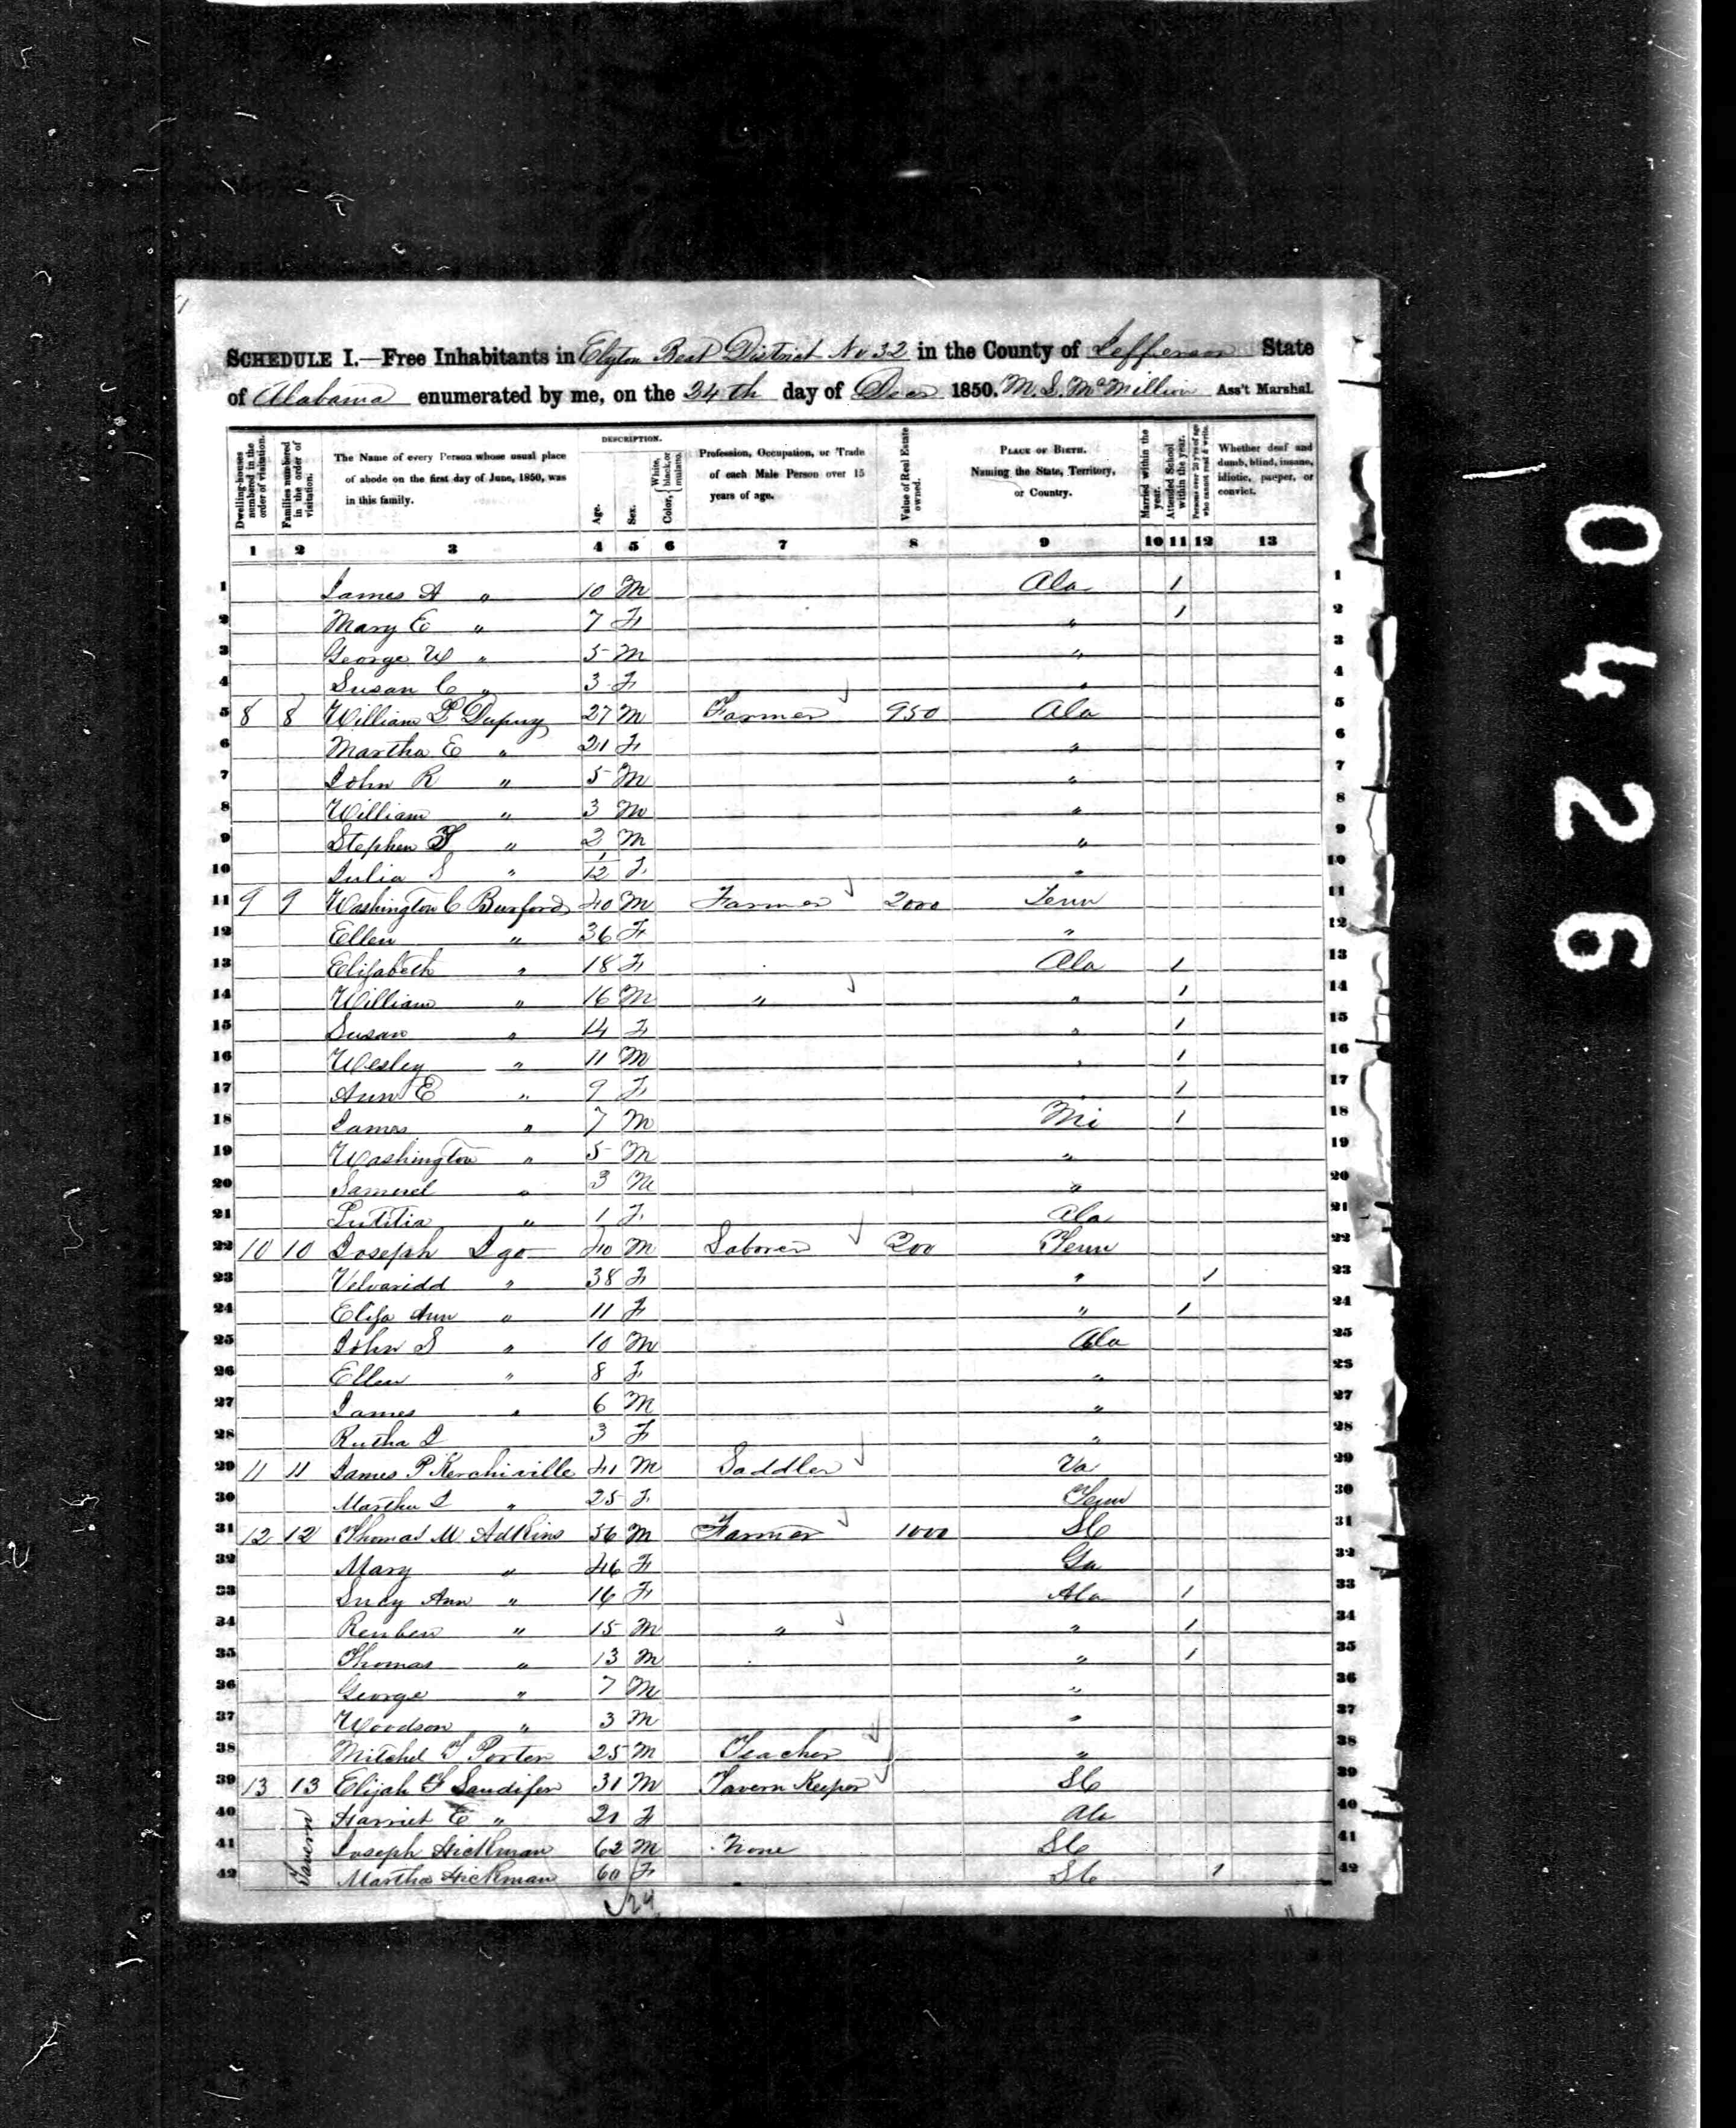 SCHEDULE I.—Free Inhabitants in Elyton Beat District No 32 in the County of Jefferson State
of Alabama enumerated by me, on the 24th day of Decr 1850. M. S. McMillion Ass't Marshal.
Dwelling-houses numbered in the order of visitation.
Families numbered in the order of visitation.
The Name of every Person whose usual place of abode on the first day of June, 1850, was in this family.
DESCRIPTION.
Age.
Sex.
Color, White, black, or mulatto.
Profession, Occupation, or Trade of each Male Person over 15 years of age.
Value of Real Estate owned.
PLACE OF BIRTH. Naming the State, Territory, or Country.
Married within the year.
Attended School within the year.
Persons over 20 y'rs of age who cannot read & write.
Whether deaf and dumb, blind, insane, idiotic, pauper, or convict.
1 2 3 4 5 6 7 8 9 10 11 12 13
1 James A " 10 M Ala 1 1
2 Mary E " 7 F " 1 2
3 George W " 5 M " 3
4 Susan C " 3 F " 4
5 8 8 William L Dupuy 27 M Farmer 950 Ala 5
6 Martha E " 21 F " 6
7 John R " 5 M " 7
8 William " 3 M " 8
9 Stephen T " 2 M " 9
10 Julia S " 1/12 F " 10
11 9 9 Washington C Burford 40 M Farmer 2000 Tenn 11
12 Ellen " 36 F " 12
13 Elizabeth " 18 F Ala 1 13
14 William " 16 M " " 1 14
15 Susan " 14 F " 1 15
16 Wesley " 11 M " 1 16
17 Ann E " 9 F " 1 17
18 James " 7 M Mi 1 18
19 Washington " 5 M " 19
20 Samuel " 3 M " 20
21 Lutitia " 1 F Ala 21
22 10 10 Joseph Igo 40 M Laborer 200 Tenn 22
23 Velvaridd " 38 F " 1 23
24 Eliza Ann " 11 F " 1 24
25 John S " 10 M Ala 25
26 Ellen " 8 F " 26
27 James " 6 M " 27
28 Rutha I 3 F " 28
29 11 11 James P Kerchiville 41 M Saddler Va 29
30 Martha I " 25 F Tenn 30
31 12 12 Thomas M Adkins 56 M Farmer 1000 SC 31
32 Mary " 46 F Ga 32
33 Lucy Ann " 16 F Ala 1 33
34 Reuben " 15 M " " 1 34
35 Thomas " 13 M " 1 35
36 George " 7 M " 36
37 Woodson " 3 M " 37
38 Mitchel T Porter 25 M Teacher " 38
39 13 13 Elijah F Sandifer 31 M Tavern Keeper SC 39
40 Tavern Harriet E " 21 F Ala 40
41 Joseph Hickman 62 M None SC 41
42 Martha Hickman 60 F SC 1 42
0426